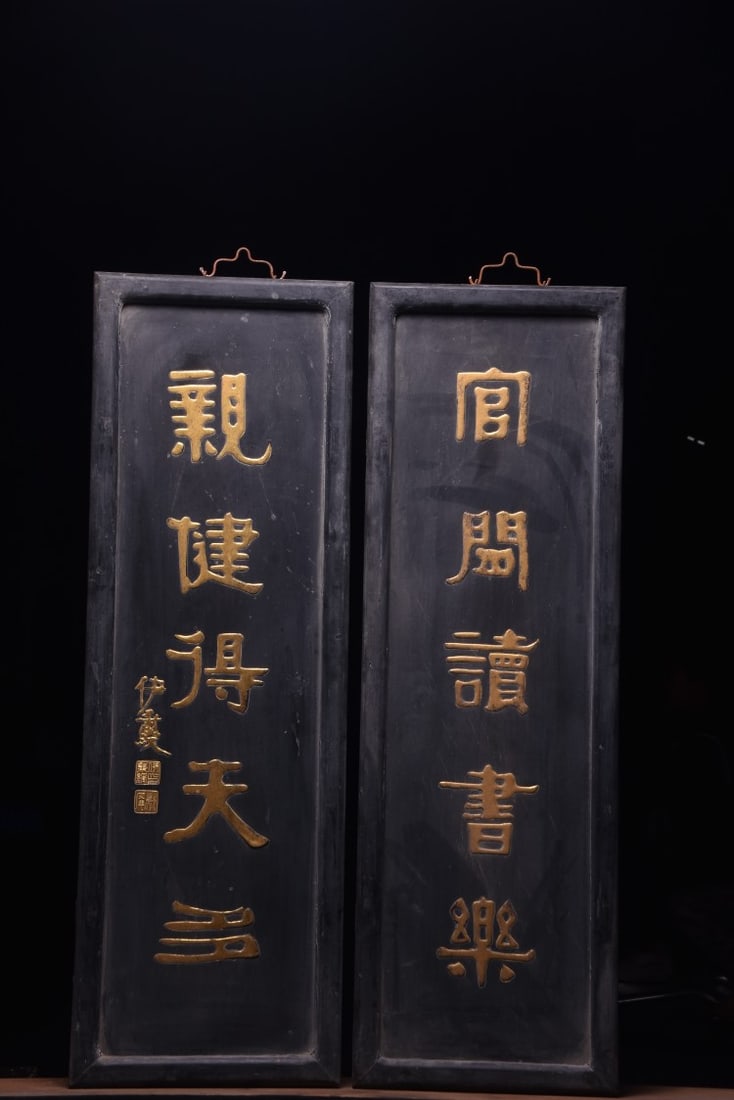 官閒讀書樂
親健得天多
伊秉綬